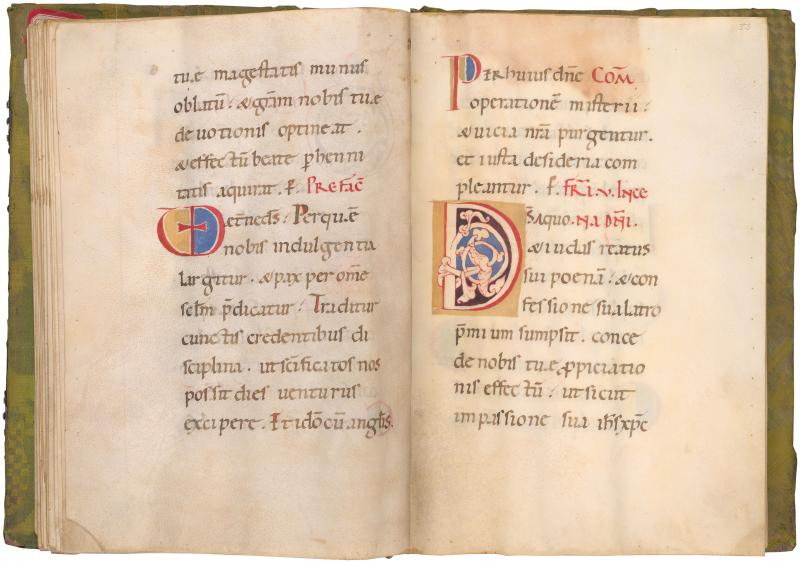 tuae magestatis munus
oblatū: & grām nobis tuae
devotionis optineat.
& effectū beate phenni
tatis aquirat. ꝑ. PREFAČ
aet̄neds: Perquē
nobis indulgentia
largitur. & pax per om̄e
sclm̄ p̄dicatur: Traditur
cunctis credentibus di
sciplina. ut scīficatos nos
possit dies venturus
excipere. Et idō cū angl̄is.
33
PER huius dnē COM̄
operationē misterii:
& vicia nr̄a purgentur.
et iusta desideria com
pleantur. ꝑ. FR̄I. V. INCE
D̄S A quo. NA DN̄I.
& iudas reatus
sui poenā: & con
fessione sua latro
p̄mium sumpsit. conce
de nobis tuae ꝓpiciatio
nis effectū: ut sicut
in passione sua ih̄s xp̄c